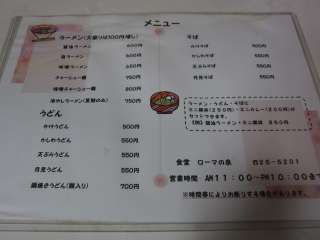 メニュー
ラーメン(大盛りは100円増し)
醤油ラーメン 600円
塩ラーメン 600円
味噌ラーメン 650円
チャーシュー麺 750円
味噌チャーシュー麺 800円
冷やしラーメン(夏期のみ) 750円
うどん
かけうどん 500円
かしわうどん 550円
天ぷらうどん 550円
月見うどん 550円
鍋焼きうどん(餅入り) 700円
そば
かけそば 500円
かしわそば 550円
天ぷらそば 550円
月見そば 550円
ラーメン・うどん・そばに
セットできます。
食堂 ローマの泉 ☎25-5201
営業時間 AM11:00~PM10:00まで
※時間帯によりお断りする場合があります。